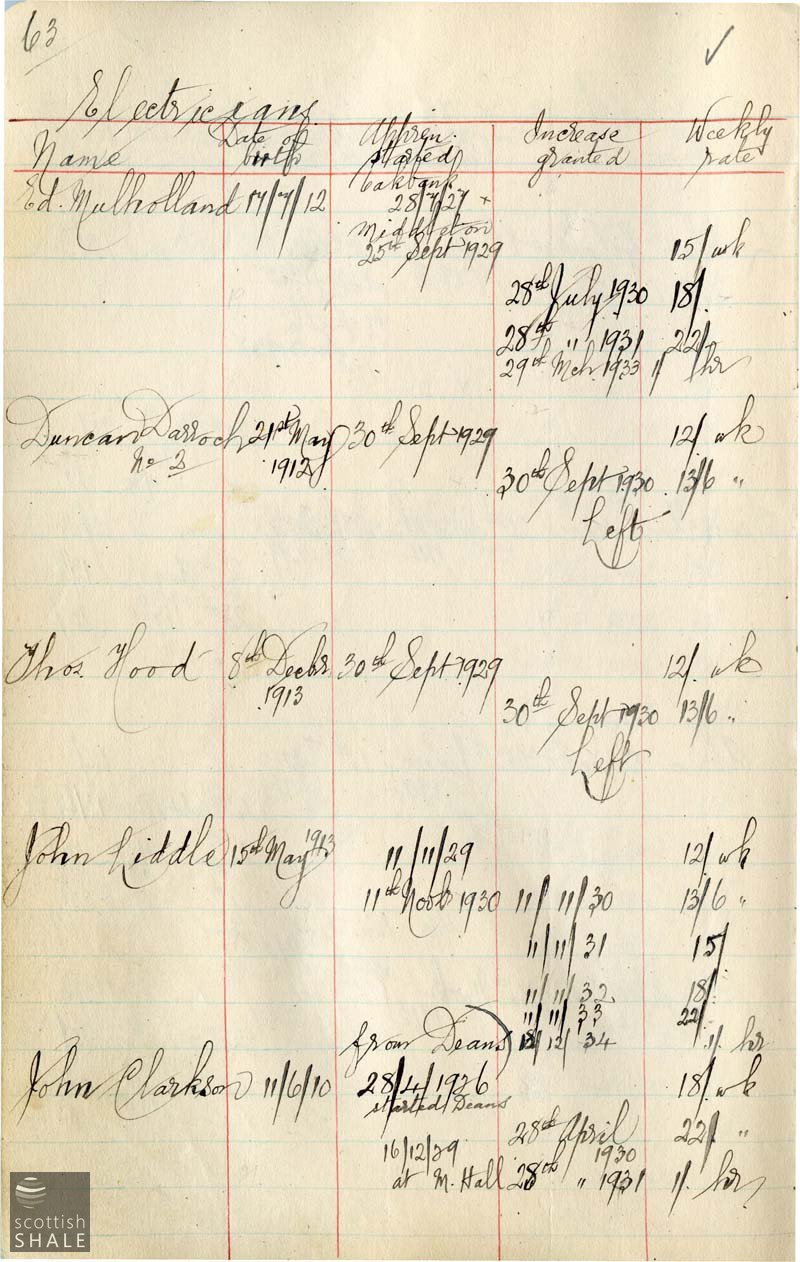 63 ✓
Electricians
Name Date of birth Appren. started Increase granted Weekly rate
Oakbank
Ed. Mulholland 17/7/12 28/7/27 +
Middleton
25th Sept 1929 15/ wk
28th July 1930 18/.
28th " 1931 22/.
29th Mch. 1933 1/ hr
Duncan Darroch 21st May 30th Sept 1929 12/. wk
No 2 1912
30th Sept 1930 13/6 "
Left
Thos. Hood 8th Decbr 30th Sept 1929 12/. wk
1913
30th Sept 1930 13/6 "
Left
John Liddle 15th May 1913 11/11/29 12/ wk
11th Novbr 1930 11/11/30 13/6 "
11/11/31 15/
11/11/32 18/.
11/11/33 22/.
from Deans) 12/34 1/. hr
John Clarkson 11/6/10 28/4/1926 18/. wk
started Deans
28th April 22/. "
1930
16/12/29
at M. Hall 28th " 1931 1/. hr
scottish
SHALE